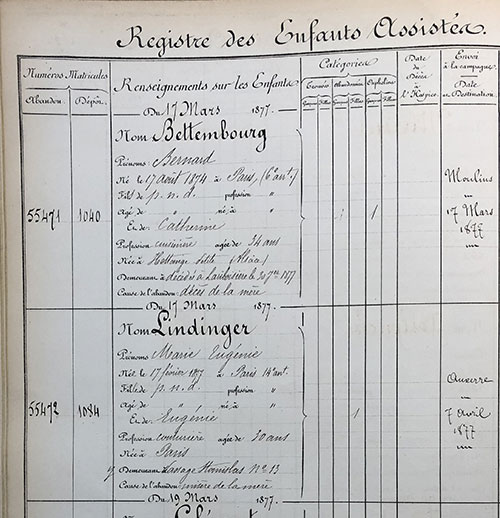 Registre des Enfants Assistés.
Numéros Matricules
Abandon. Dépôt.
Renseignements sur les Enfants
Catégories
Trouvés Abandonnés Orphelins
Garçons Filles Garçons Filles Garçons Filles
Date
du
Décès
à
l'Hospice.
Envoi
à la campagne.
Date
et Destination.
Du 17 Mars 1877.
Nom Bettembourg
Prénoms Bernard
Né le 17 août 1874 à Paris, (6e arrt.)
Fils de p. n. d. profession "
Agé de " né à "
Et de Catherine
Profession cuisinière agée de 34 ans
Née à Hettange
Demeurant à décédée à Lariboisière le
Cause de l'abandon: décès de la mère
55471 1040 1
Moulins
17 Mars
1877
Du 17 Mars 1877.
Nom Lindinger
Prénoms Marie Eugénie
Née le 17 février à Paris 14e arrt.
Fille de p. n. d. profession "
Agé de " né à "
Et de Eugénie
Profession couturière agée de 30 ans
Née à Paris
Demeurant Passage Stanislas No 13
Cause de l'abandon: misère de la mère
55472 1084 1
Auxerre
7 avril
1877
Du 19 Mars 1877.